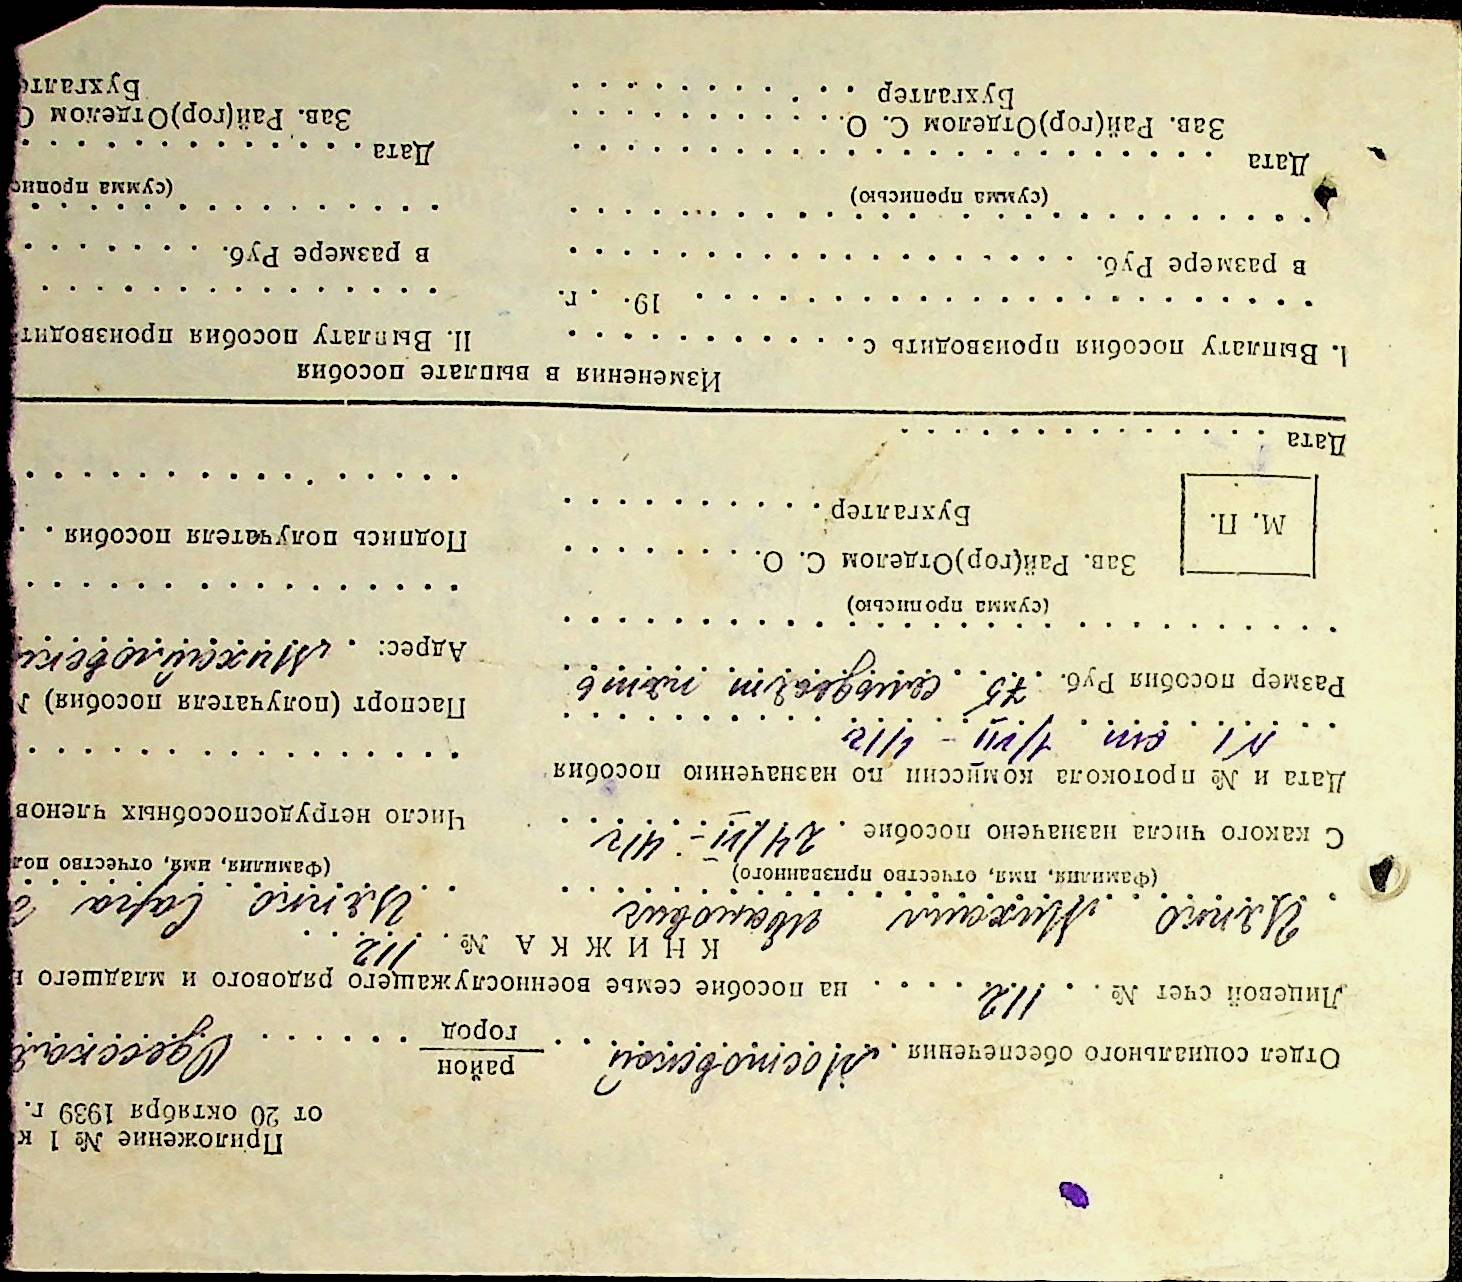 Приложение № 1 к
от 20 октября 1939 г.
Отдел социального обеспечения . Мостовской . . район / город . . . . . . Одесская
Лицевой счет № . . 112 . . . . на пособие семье военнослужащего рядового и младшего
КНИЖКА № . 112 . .
Михаил Иванович
(Фамилия, имя, отчество призванного)
С какого числа назначено пособие . 24/VI - 41г
Дата и № протокола комиссии по назначению пособия
N1 от 1/VII - 41г
Размер пособия Руб. . 75 . . семьдесят пять
(сумма прописью)
Зав. Рай(гор)Отделом С. О. . . . . . . .
М. П.
Бухгалтер . . . . . . . . . .
Дата . . . . . . . . . . . . .
Сара
(Фамилия, имя, отчество пол
Число нетрудоспособных членов
Паспорт (получателя пособия)
Адрес: . Михайловск
Подпись получателя пособия . .
Изменения в выплате пособия
I. Выплату пособия производить с . . . . . . . . . . .
. . . . . . . . . . . . . . . . 19 . . г.
в размере Руб. . . . . . . . . . . . . . . . . .
(сумма прописью)
Дата . . . . . . . . . . . . . . . . . . . . . .
Зав. Рай(гор)Отделом С. О. . . . . . . . . .
Бухгалтер . . . . . . . . . .
II. Выплату пособия производит
в размере Руб. . . . . . . .
(сумма пропис
Дата . . . . . . . . . . . . .
Зав. Рай(гор)Отделом С
Бухгалте